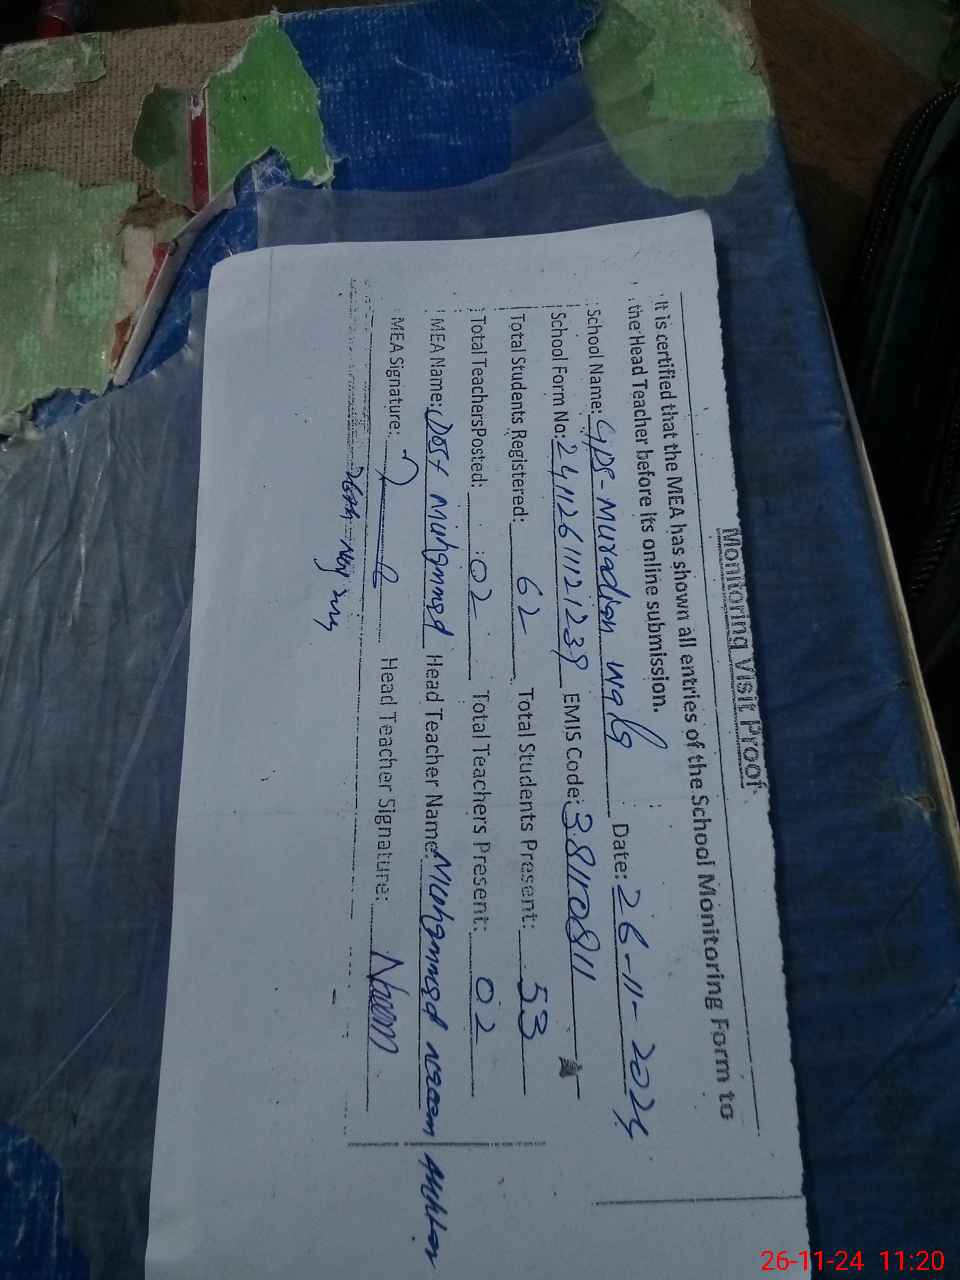 Monitoring Visit Proof
It is certified that the MEA has shown all entries of the School Monitoring Form to
the Head Teacher before its online submission.
School Name: GPS-Muradian wala Date: 26-11-2024
School Form No: EMIS Code: 38110811
Total Students Registered: 62 Total Students Present: 53
Total TeachersPosted: 02 Total Teachers Present: 02
MEA Name: Dost Muhammad Head Teacher Name: Muhammad naeem Akhtar
MEA Signature: Head Teacher Signature: Naeem
26-11-24 11:20